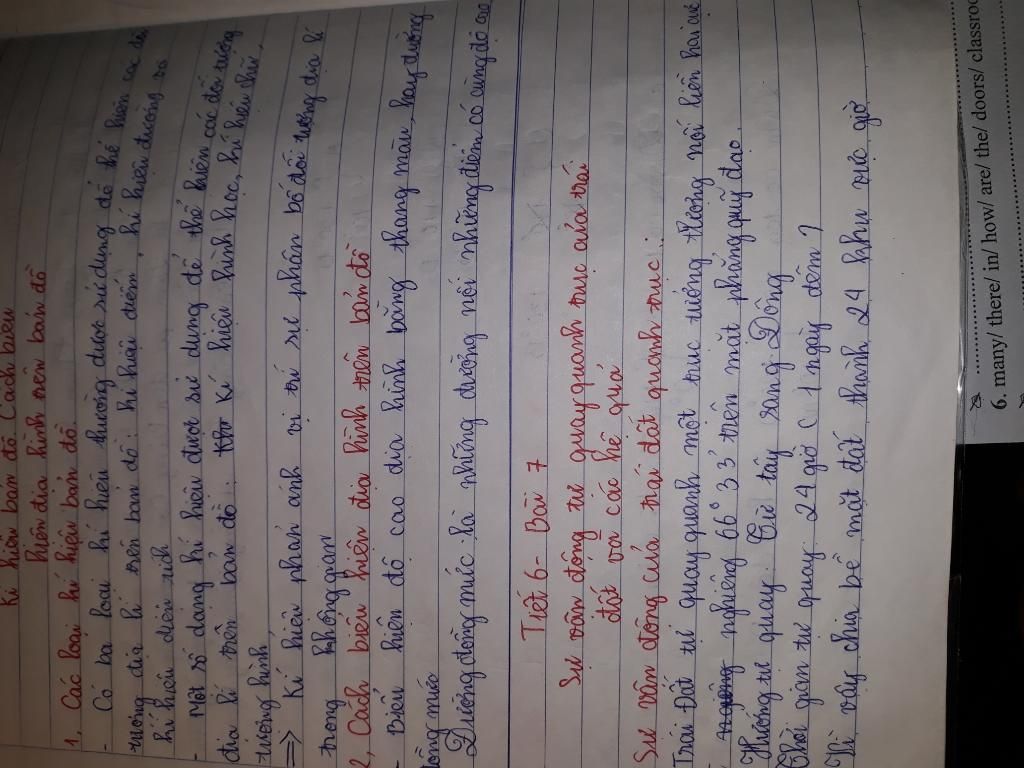 Kí hiệu bản đồ. Cách biểu
hiện địa hình trên bản đồ
1, Các loại kí hiệu bản đồ
- Có ba loại kí hiệu thường được sử dụng để thể hiện các đối
tượng địa lí trên bản đồ: kí hiệu điểm, kí hiệu đường và
kí hiệu diện tích
- Một số dạng kí hiệu được sử dụng để thể hiện các đối tượng
địa lí trên bản đồ: Kí hiệu hình học, kí hiệu chữ,
tượng hình
=> Kí hiệu phản ánh vị trí sự phân bố đối tượng địa lí
trong không gian
2, Cách biểu hiện địa hình trên bản đồ
- Biểu hiện độ cao địa hình bằng thang màu, hay đường
đồng mức
Đường đồng mức là những đường nối những điểm có cùng độ cao
Tiết 6 - Bài 7
Sự vận động tự quay quanh trục của trái
đất và các hệ quả
Sự vận động của trái đất quanh trục:
Trái Đất tự quay quanh một trục tưởng tượng nối liền hai cực
nghiêng 66° 33' trên mặt phẳng quỹ đạo.
Hướng tự quay: Từ tây sang Đông
Thời gian tự quay: 24 giờ (1 ngày đêm)
Vì vậy chia bề mặt đất thành 24 khu vực giờ
6. many/ there/ in/ how/ are/ the/ doors/ classroo